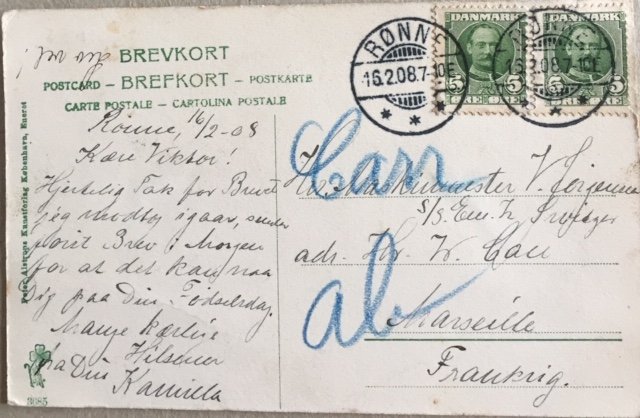 BREVKORT
POSTCARD – BREFKORT – POSTKARTE
CARTE POSTALE – CARTOLINA POSTALE
DANMARK
DANMARK
RØNNE
16.2.08.7-10E
5 ØRE 5
RØNNE
16.2.08.7-10E
5 ØRE 5
Rønne, 16/2-08
Kære Viktor!
Hjertelig Tak for Brevet
jeg modtog igaar, sender
Brev i Morgen
for at det kan naa
Dig paa Din Fødselsdag.
Mange kærlige
Hilsener
fra Din Kamilla
Hr. Maskinmester V. Jørgensen
S/S. Em. Z.
adr. Hr. W.
Marseille
Frankrig.
Peter Alstrups Kunstforlag København, Eneret
3685